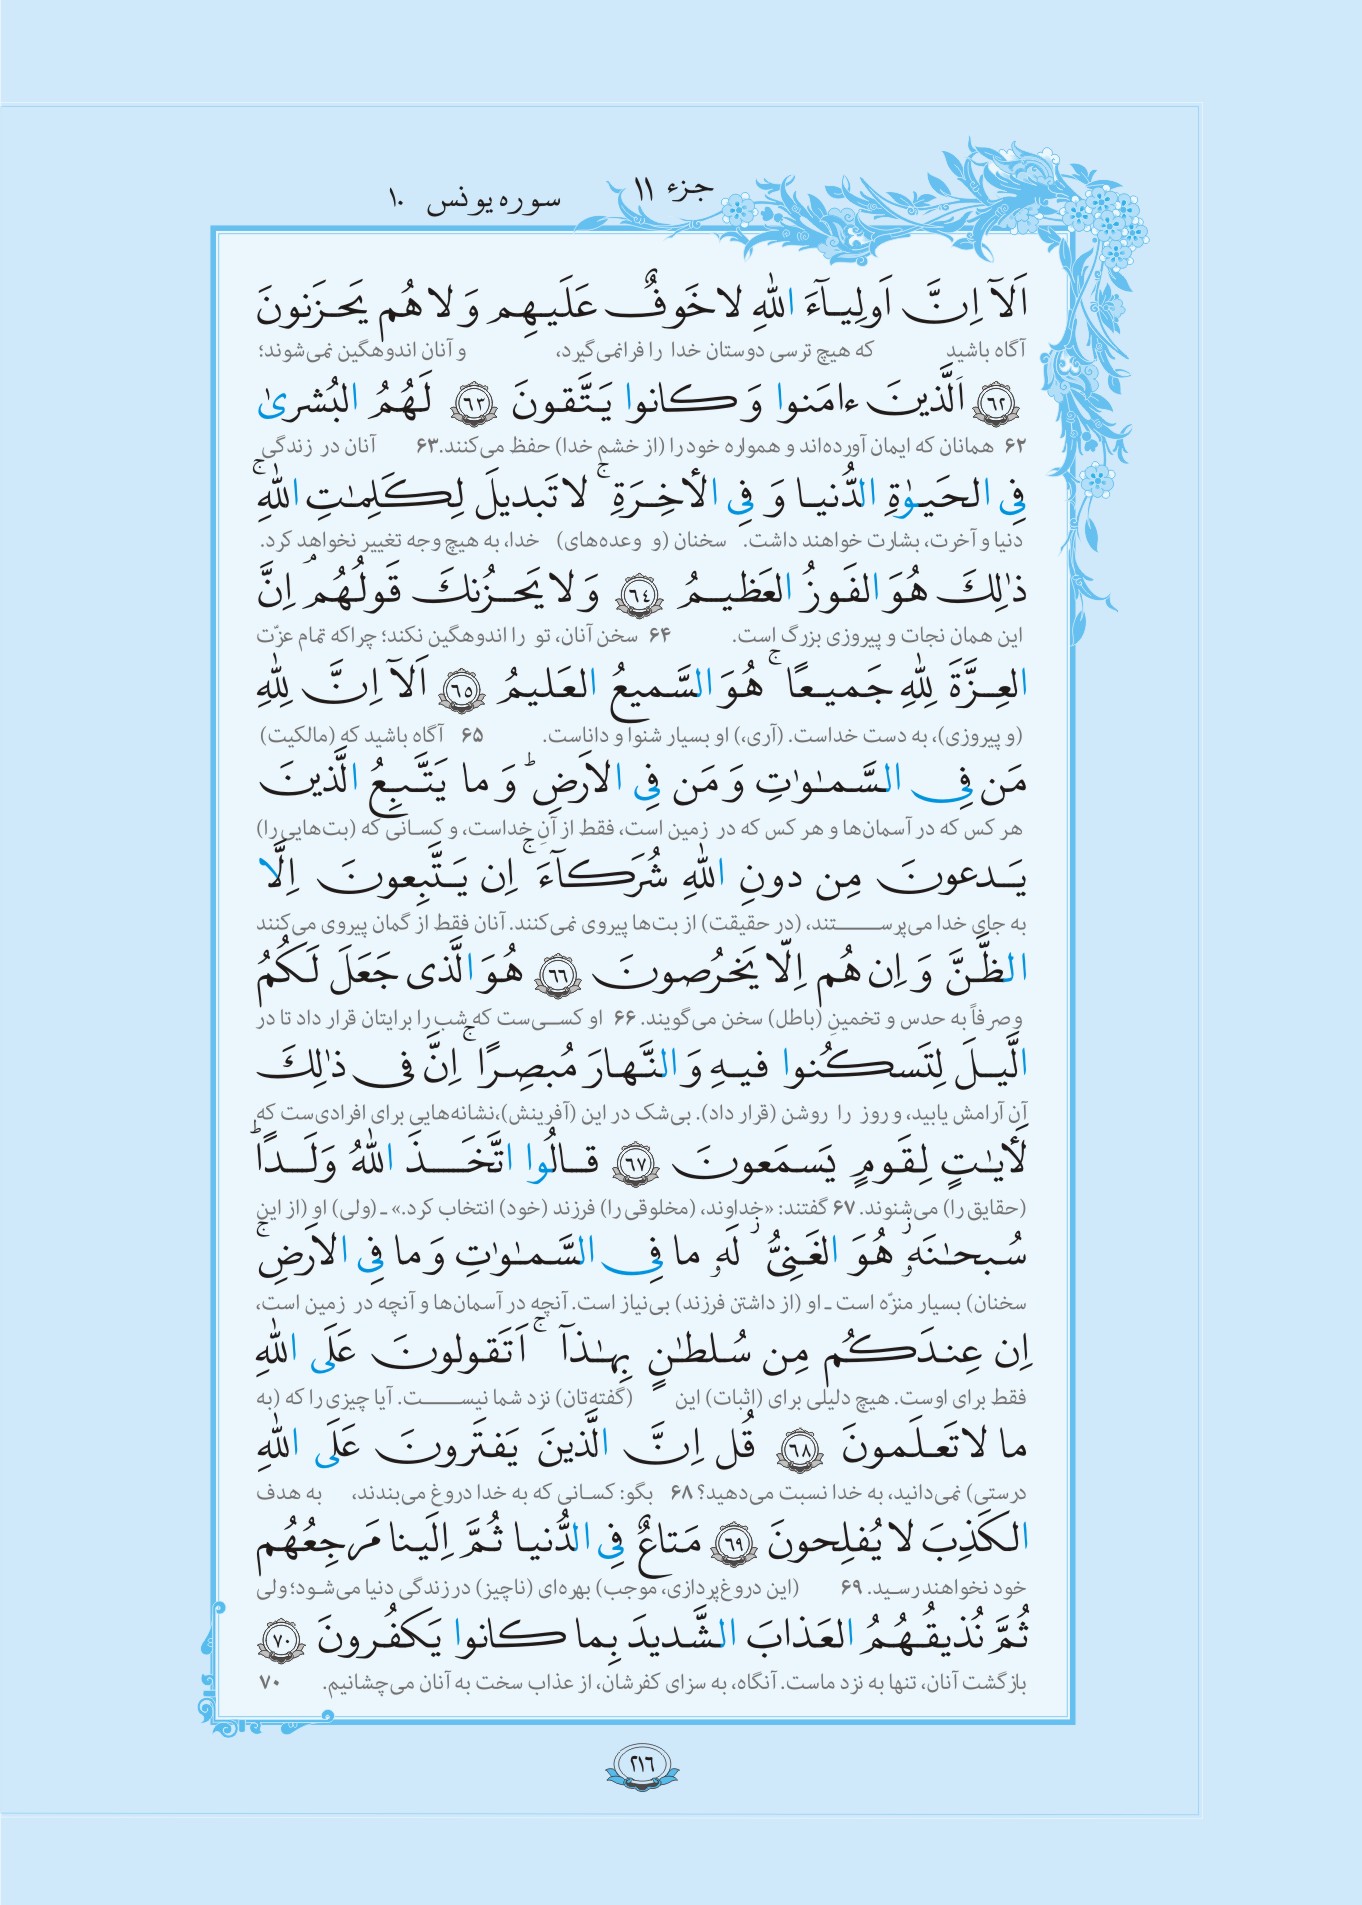 جزء ۱۱
سوره یونس ۱۰
اَلَآ اِنَّ اَولِیـآءَ اللّٰهِ لا خَوفٌ عَلَیـهِم وَ لا هُم یَحـزَنونَ
آگاه باشید که هیچ ترسی دوستان خدا را فرانمی‌گیرد، و آنان اندوهگین نمی‌شوند؛
﴿٦٢﴾ اَلَّذینَ ءامَنوا وَ کانوا یَـتَّقونَ ﴿٦٣﴾ لَهُمُ البُشریٰ
۶۲ همانان که ایمان آورده‌اند و همواره خود را (از خشم خدا) حفظ می‌کنند. ۶۳ آنان در زندگی
فِی الحَیـوٰةِ الدُّنیـا وَ فِی الأخِـرَةِ ۚ لا تَبدیلَ لِکَلِمـٰتِ اللّٰهِ ۚ
دنیا و آخرت، بشارت خواهند داشت. سخنان (و وعده‌های) خدا، به هیچ وجه تغییر نخواهد کرد.
ذٰلِکَ هُوَ الفَوزُ العَظیـمُ ﴿٦٤﴾ وَ لا یَحـزُنکَ قَولُهُم ۘ اِنَّ
این همان نجات و پیروزی بزرگ است. ۶۴ سخن آنان، تو را اندوهگین نکند؛ چراکه تمام عزّت
العِـزَّةَ لِلّٰهِ جَمیـعًا ۚ هُوَ السَّمیعُ العَلیمُ ﴿٦٥﴾ اَلَآ اِنَّ لِلّٰهِ
(و پیروزی)، به دست خداست. (آری،) او بسیار شنوا و داناست. ۶۵ آگاه باشید که (مالکیت)
مَن فِی السَّمـٰوٰتِ وَ مَن فِی الاَرضِ ؕ وَ ما یَتَّـبِـعُ الَّذینَ
هر کس که در آسمان‌ها و هر کس که در زمین است، فقط از آنِ خداست، و کسـانی که (بت‌هایی را)
یَـدعونَ مِن دونِ اللّٰهِ شُرَکـآءَ ۚ اِن یَـتَّبِعونَ اِلَّا
به جای خدا می‌پرســـتند، (در حقیقت) از بت‌ها پیروی نمی‌کنند. آنان فقط از گمان پیروی می‌کنند
الظَّنَّ وَ اِن هُم اِلّا یَخرُصونَ ﴿٦٦﴾ هُوَ الَّذی جَعَلَ لَکُمُ
و صرفاً به حدس و تخمینِ (باطل) سخن می‌گویند. ۶۶ او کســی‌ست که شب را برایتان قرار داد تا در
الَّیـلَ لِتَسکُنوا فیـهِ وَ النَّهـارَ مُبصِرًا ۚ اِنَّ فی ذٰلِکَ
آن آرامش یابید، و روز را روشن (قرار داد). بی‌شک در این (آفرینش)، نشانه‌هایی برای افرادی‌ست که
لَأیـٰتٍ لِقَومٍ یَسمَعونَ ﴿٦٧﴾ قـالُوا اتَّخَـذَ اللّٰهُ وَلَـدًا ؕ
(حقایق را) می‌شنوند. ۶۷ گفتند: «خداوند، (مخلوقی را) فرزند (خود) انتخاب کرد.» ـ (ولی) او (از این
سُبحـٰنَهٗ ۖ هُوَ الغَنِیُّ ۖ لَهٗ ما فِی السَّمـٰوٰتِ وَ ما فِی الاَرضِ ۚ
سخنان) بسیار منزّه است ـ او (از داشتن فرزند) بی‌نیاز است. آنچه در آسمان‌ها و آنچه در زمین است،
اِن عِنـدَکُم مِن سُلطـٰنٍ بِهـٰذآ ۚ اَتَقولونَ عَلَی اللّٰهِ
فقط برای اوست. هیچ دلیلی برای (اثبات) این (گفته‌تان) نزد شما نیســـت. آیا چیزی را که (به
ما لا تَعـلَـمونَ ﴿٦٨﴾ قُل اِنَّ الَّذینَ یَفتَرونَ عَلَی اللّٰهِ
درستی) نمی‌دانید، به خدا نسبت می‌دهید؟ ۶۸ بگو: کسـانی که به خدا دروغ می‌بندند، به هدف
الکَذِبَ لا یُفلِحونَ ﴿٦٩﴾ مَتاعٌ فِی الدُّنیـا ثُمَّ اِلَینـا مَرجِعُهُم
خود نخواهند رسـید. ۶۹ (این دروغ‌پردازی، موجب) بهره‌ای (ناچیز) در زندگی دنیا می‌شود؛ ولی
ثُمَّ نُذیقُـهُمُ العَذابَ الشَّدیدَ بِما کانوا یَکفُرونَ ﴿٧٠﴾
بازگشت آنان، تنها به نزد ماست. آنگاه، به سزای کفرشان، از عذاب سخت به آنان می‌چشانیم. ۷۰
٢١٦